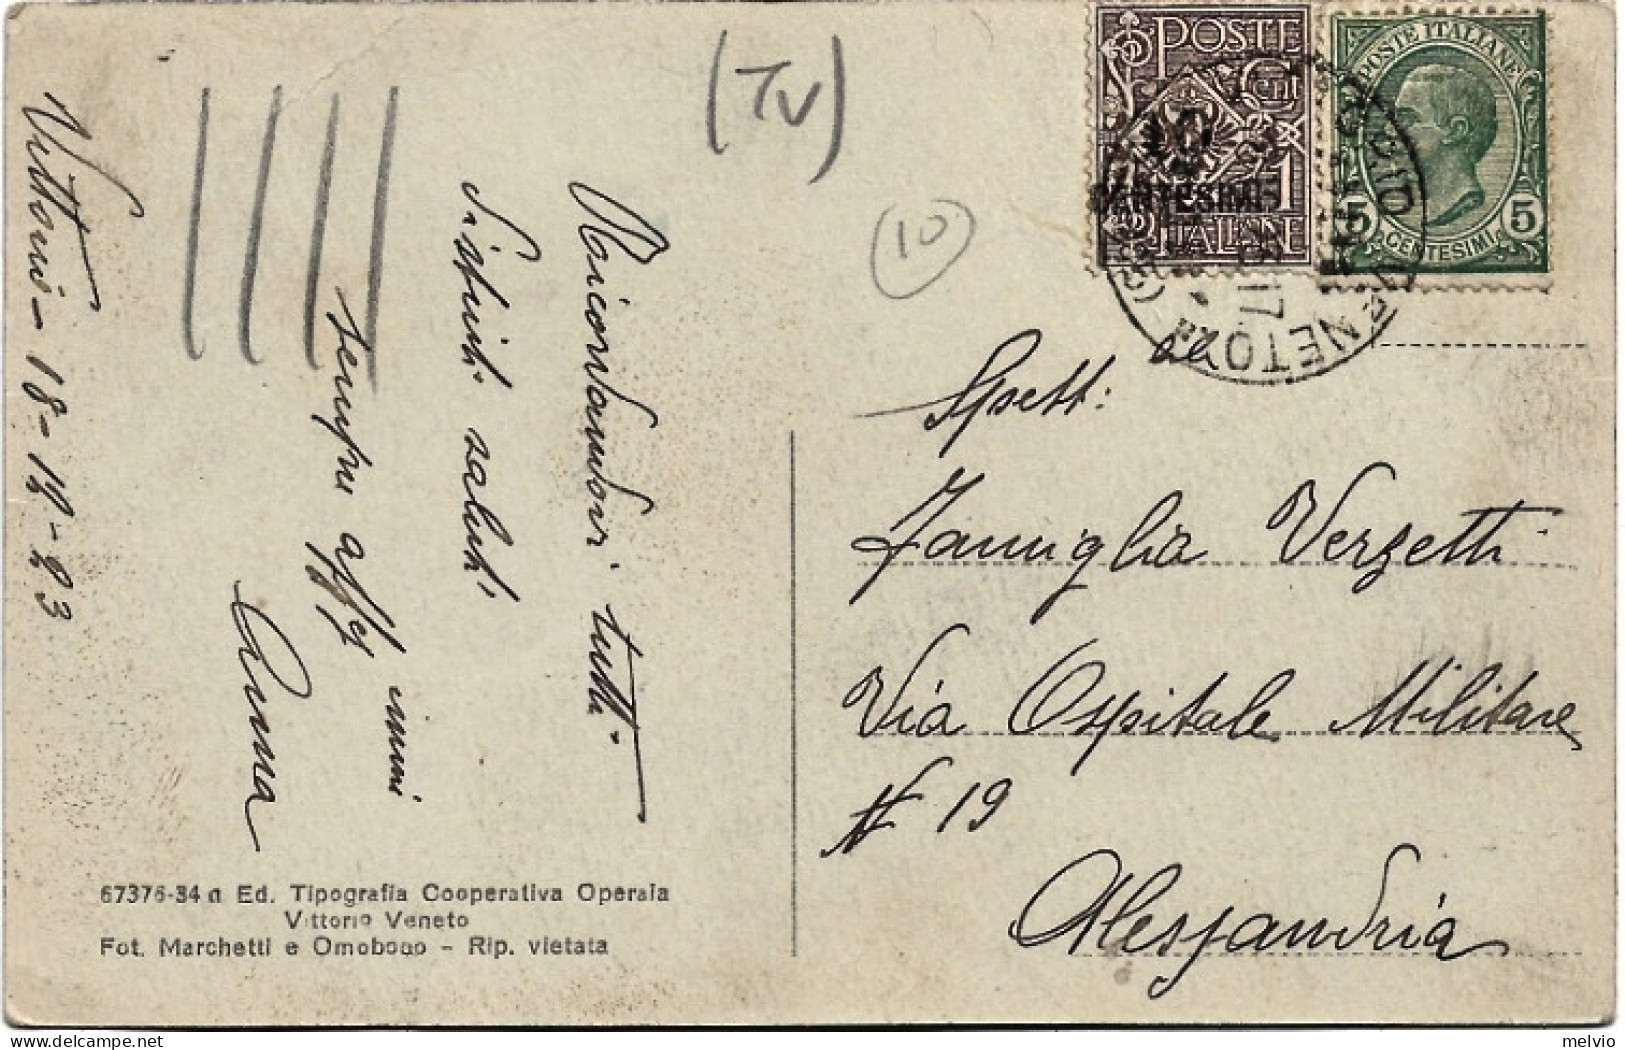 Vittorio - 18-12-23
Ricordandovi tutti
distinti saluti.
sempre aff
Anna
(TV)
10
POSTE
1
ITALIANE
10
CENTESIMI
POSTE ITALIANE
5 5
CENTESIMI
VENETO
17
Spett:
Famiglia Verzetti
Via Ospitale Militare
N 19
Alessandria
67376-34 a Ed. Tipografia Cooperativa Operaia
Vittorio Veneto
Fot. Marchetti e Omobono - Rip. vietata
melvio